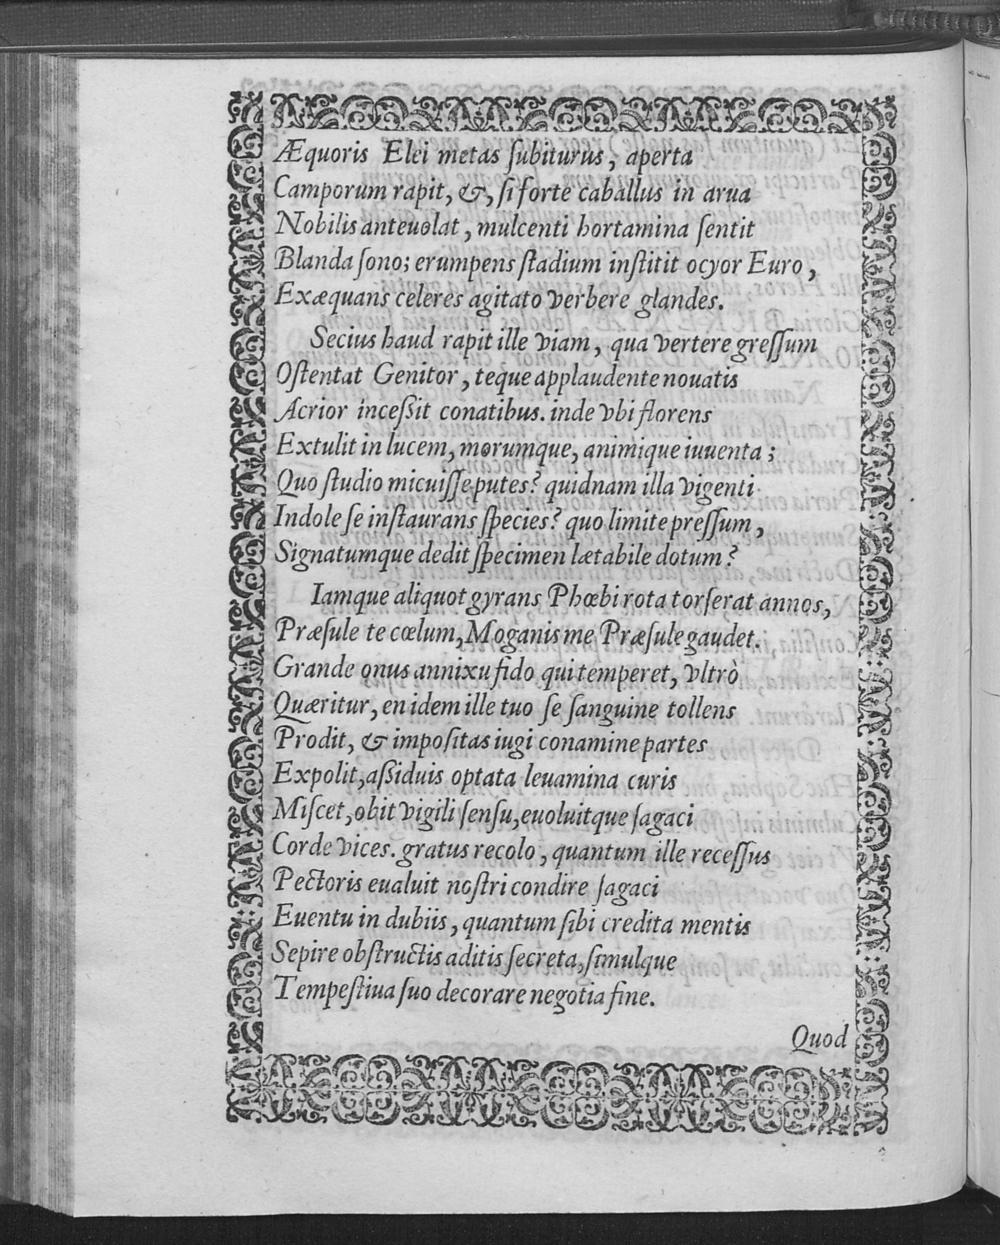 Æquoris Elei metas ſubiturus, aperta
Camporum rapit, &, ſi forte caballus in arua
Nobilis anteuolat, mulcenti hortamina ſentit
Blanda ſono; erumpens ſtadium inſtitit ocyor Euro,
Exæquans celeres agitato verbere glandes.
Secius haud rapit ille viam, qua vertere greſſum
Oſtentat Genitor, teque applaudente nouatis
Acrior inceßit conatibus. inde vbi florens
Extulit in lucem, morumque, animique iuuenta;
Quo ſtudio micuiſſe putes? quidnam illa vigenti
Indole ſe inſtaurans ſpecies? quo limite preſſum,
Signatumque dedit ſpecimen lætabile dotum?
Iamque aliquot gyrans Phœbi rota torſerat annos,
Præſule te cœlum, Moganis me Præſule gaudet.
Grande onus annixu fido qui temperet, vltrò
Quæritur, en idem ille tuo ſe ſanguine tollens
Prodit, & impoſitas iugi conamine partes
Expolit, aßiduis optata leuamina curis
Miſcet, obit vigili ſenſu, euoluitque ſagaci
Corde vices. gratus recolo, quantum ille receſſus
Pectoris eualuit noſtri condire ſagaci
Euentu in dubiis, quantum ſibi credita mentis
Sepire obſtructis aditis ſecreta, ſimulque
Tempeſtiua ſuo decorare negotia fine.
Quod